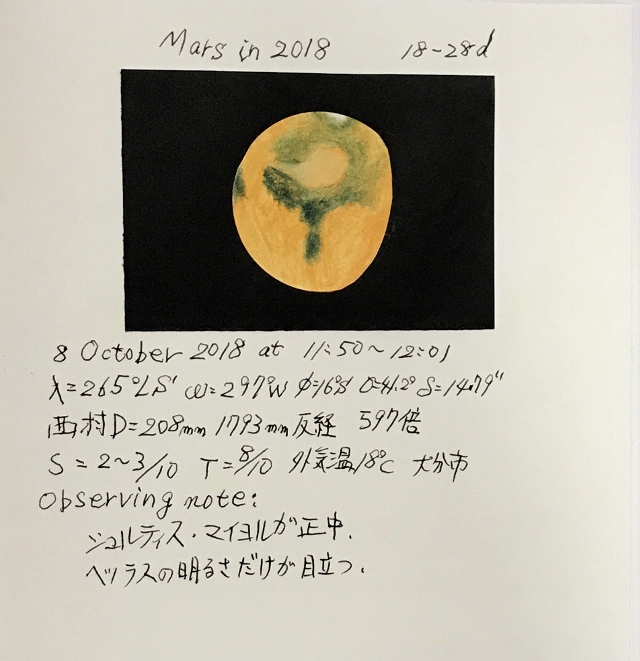 Mars in 2018 18-28d
8 October 2018 at 11:50～12:01
λ=265°LS' ω=297°W φ=16°S δ=14.79"
西村D=208mm 1793mm反経 597倍
S=2～3/10 T=8/10 外気温18℃ 大分市
Observing note:
シュルティス・マイヨルが正中.
ヘッラスの明るさだけが目立つ.